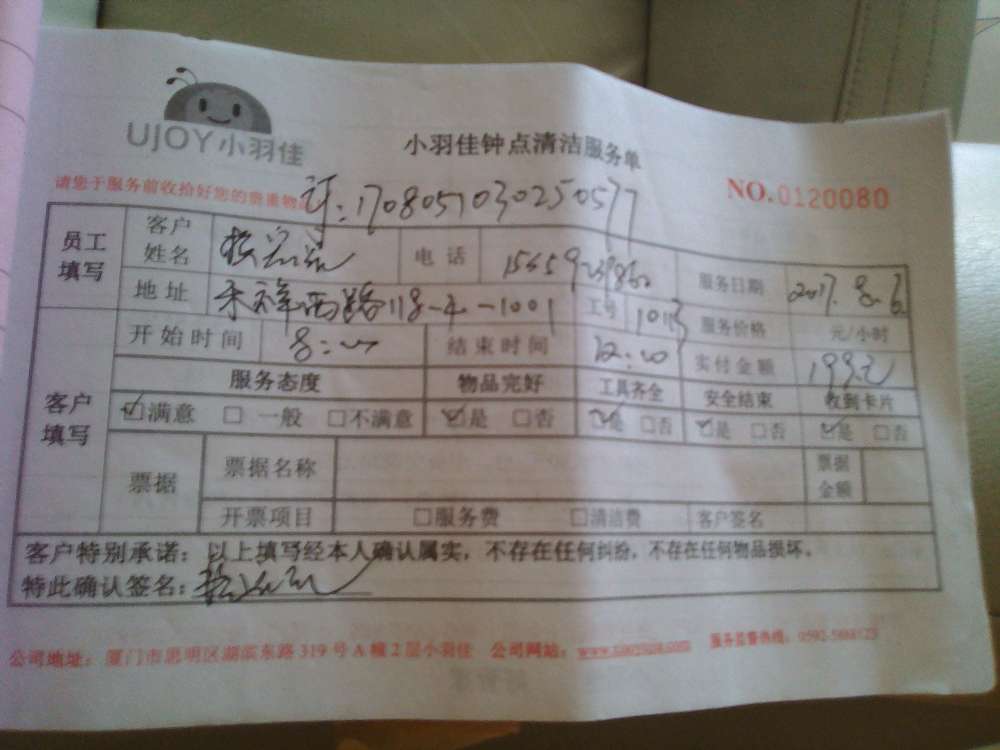 UJOY小羽佳
小羽佳钟点清洁服务单
请您于服务前收拾好您的贵重物
NO.0120080
订:170805103025057
员工填写 客户姓名 电话 服务日期 2017.8.6
地址 禾祥西路118-4-1001 工号 服务价格 元/小时
客户填写 开始时间 8:00 结束时间 12:00 实付金额 199元
服务态度 物品完好 工具齐全 安全结束 收到卡片
☑满意 □一般 □不满意 ☑是 □否 ☑是 □否 ☑是 □否 ☑是 □否
票据 票据名称 票据金额
开票项目 □服务费 □清洁费 客户签名
客户特别承诺:以上填写经本人确认属实,不存在任何纠纷,不存在任何物品损坏。
特此确认签名:
公司地址:厦门市思明区湖滨东路319号A幢2层小羽佳 公司网站: 服务监督热线: